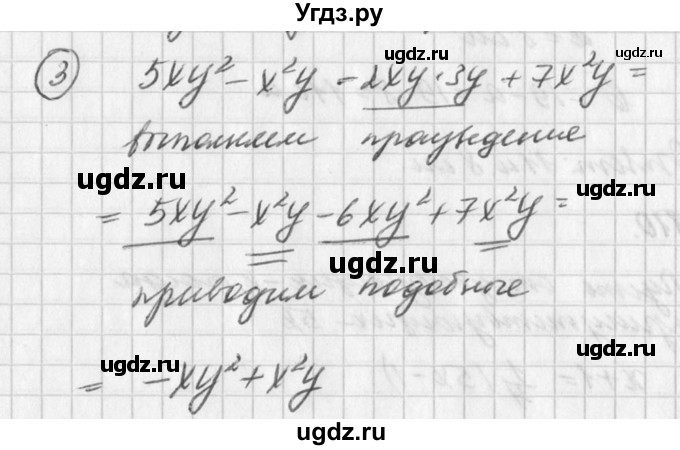 Угдз.ру
ugdz.ru ugdz.ru
③ 5xy² - x²y - 2xy·3y + 7x²y =
ugdz.ru
выполняем произведение
ugdz.ru
= 5xy² - x²y - 6xy² + 7x²y =
ugdz.ru ugdz.ru
приводим подобные
ugdz.ru ugdz.ru
= -xy² + x²y
ugdz.ru